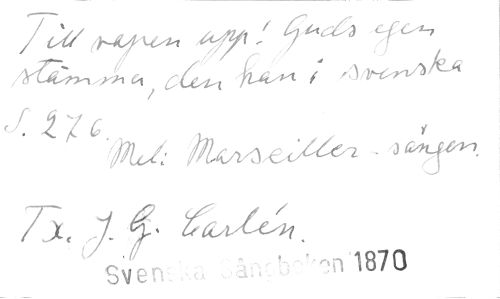 Till vapen upp! Guds egen
stämma, den han i svenska
S. 276.
Mel: Marseiller-sången.
Tx. J. G. Carlén.
Svenska Sångboken 1870